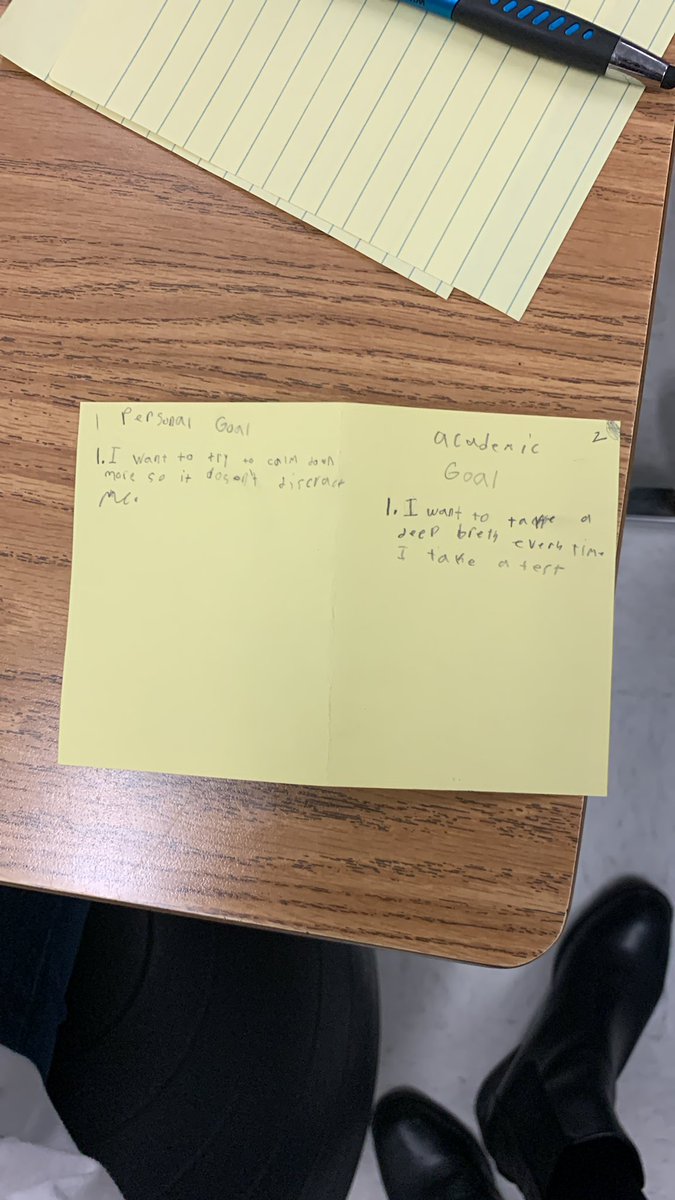 1 Personal Goal
1. I want to try to calm down
more so it dosen't discract
me.
2
academic
Goal
1. I want to take a
deep breth every time
I take a test